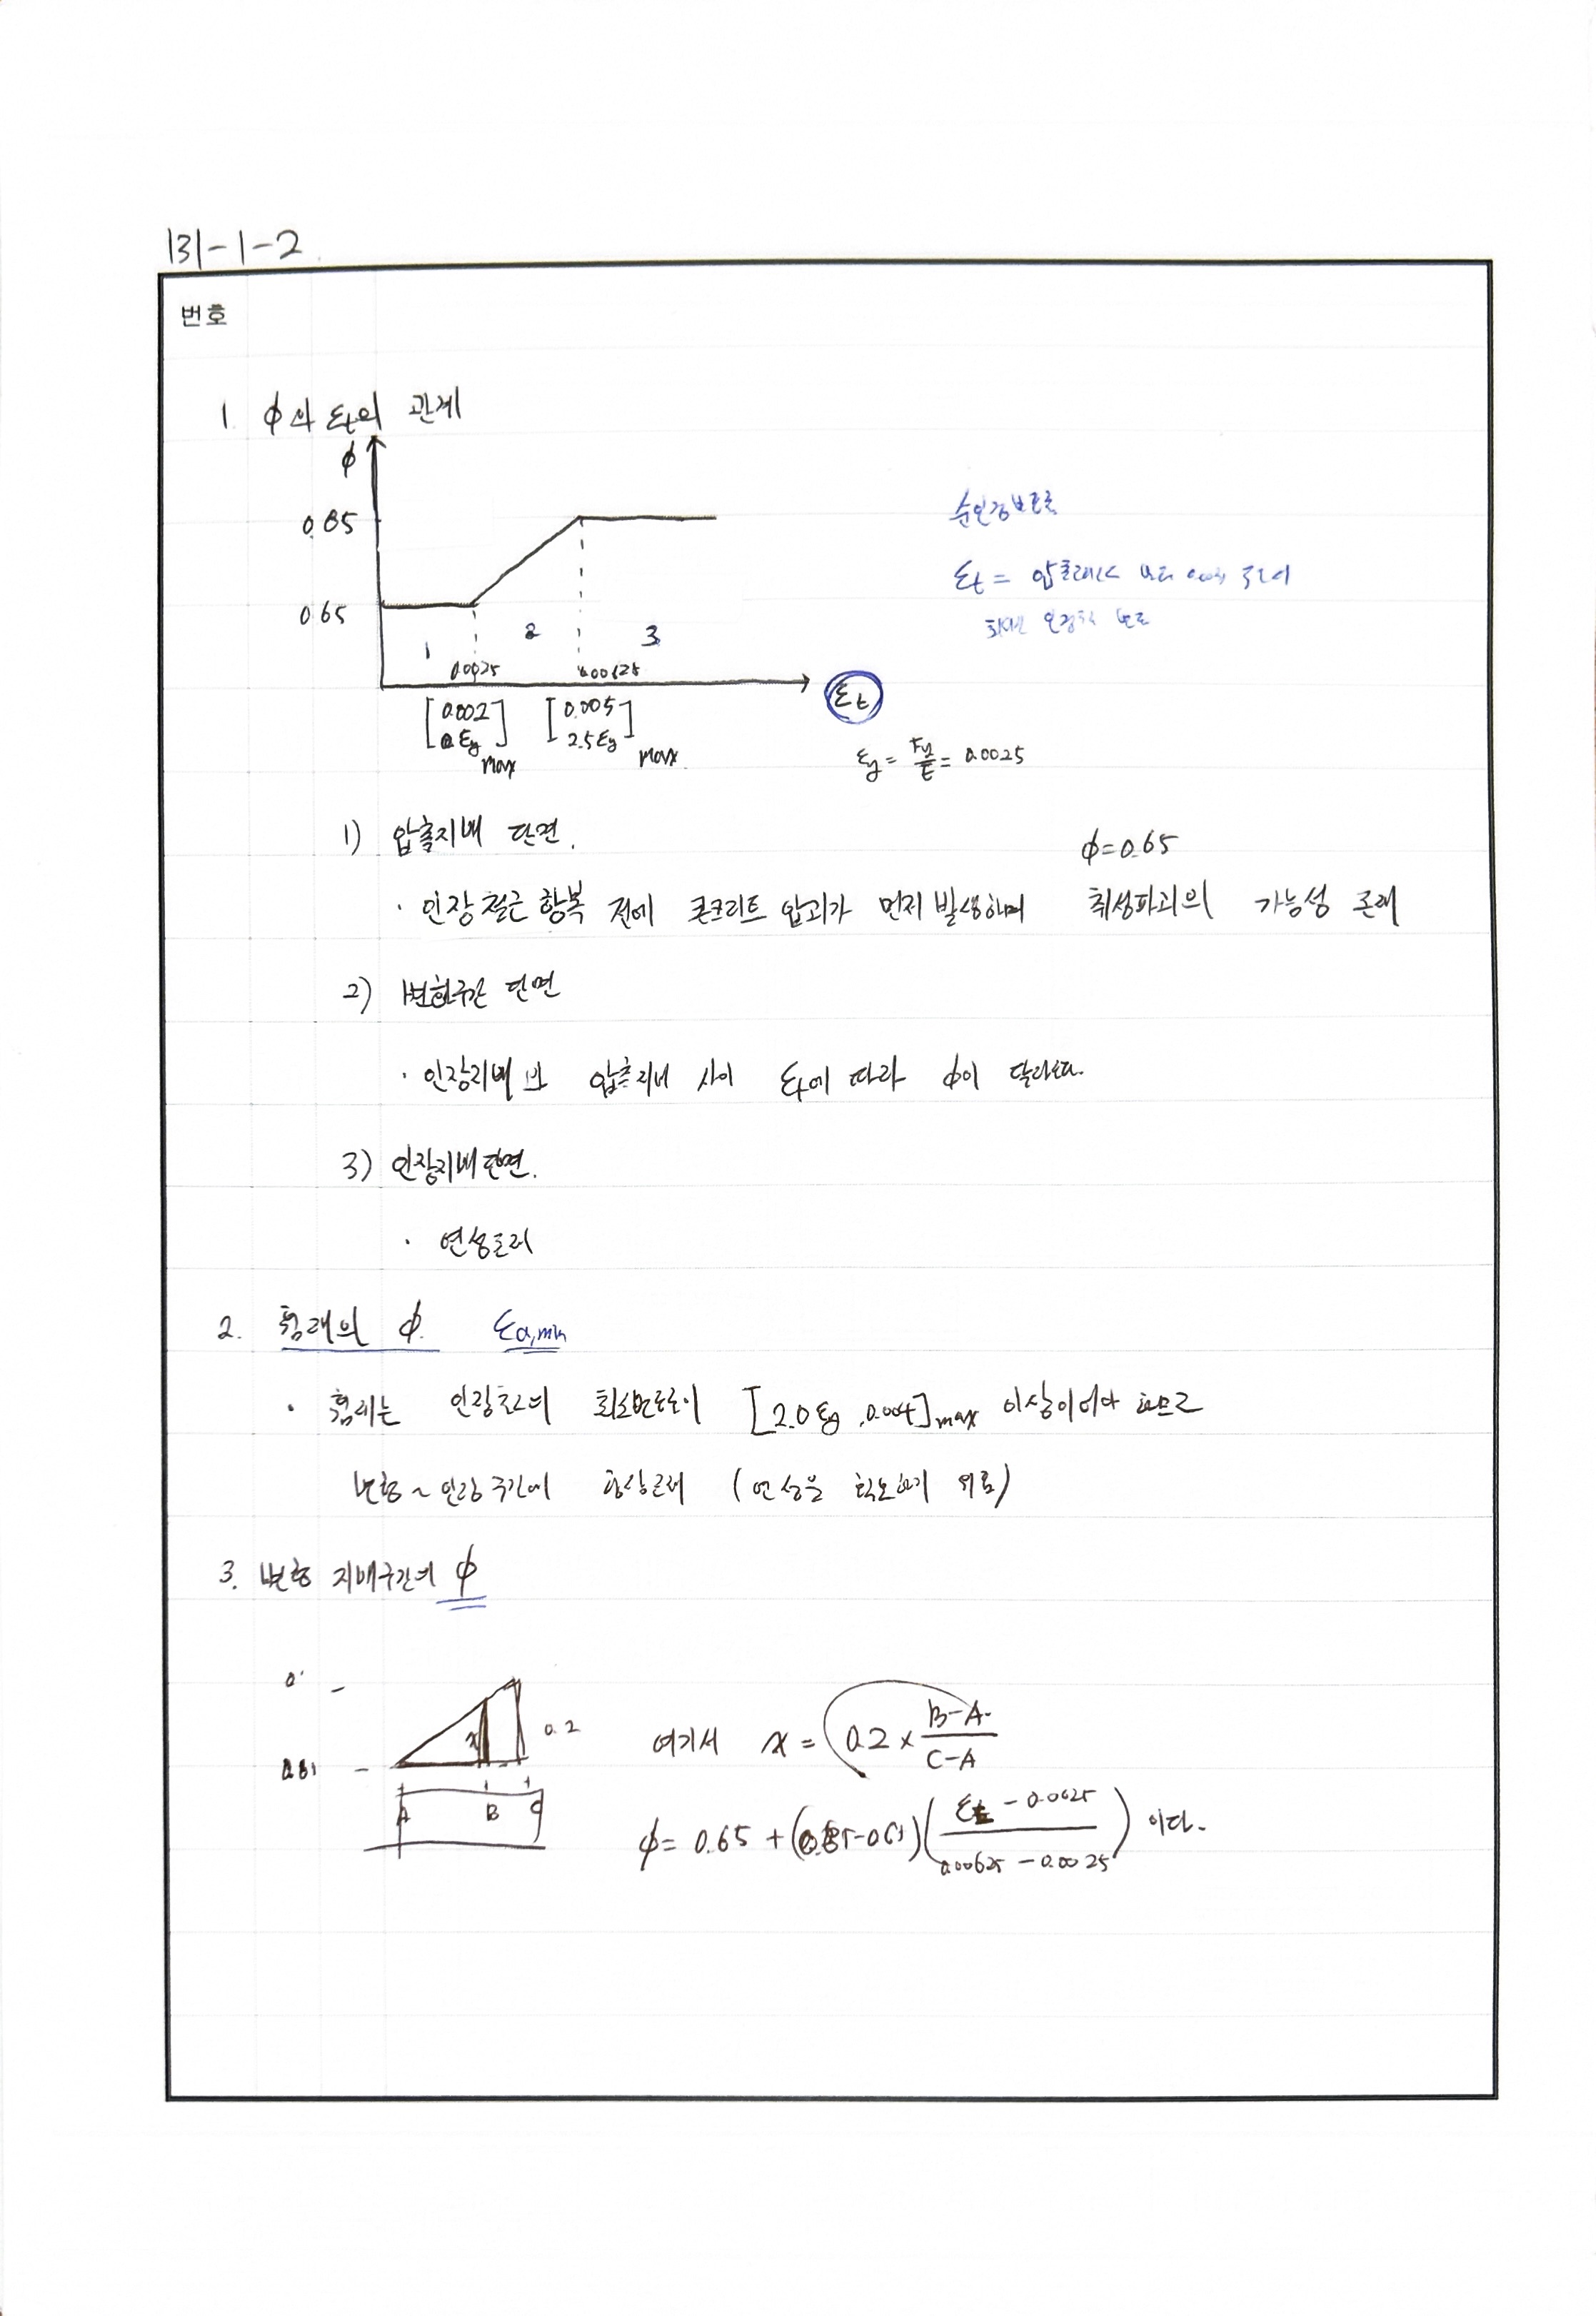 131-1-2
번호
1. φ와 εt의 관계
φ
0.85
0.65
1 2 3
0.0025 0.00625
[0.002 εy]max [0.005 2.5εy]max
εt
εy = Fy/E = 0.0025
순인장변토로
εt = 0.003
최외단 인장철근 변토
1) 압축지배 단면.
φ=0.65
· 인장철근 항복 전에 콘크리트 압괴가 먼저 발생하며 취성파괴의 가능성 존재
2) 변화구간 단면
· 인장지배 와 압축지배 사이 εt에 따라 φ이 달라진다.
3) 인장지배단면.
· 연성파괴
2. 휨재의 φ. εa,min
· 휨재는 인장철근의 최소변토률이 [2.0εy, 0.004]max 이상이어야 하므로
변화~인장 구간에 항상존재 (연성을 확보하기 위함)
3. 변화 지배구간의 φ
x 0.2
A B C
여기서 x = 0.2 × (B-A)/(C-A)
φ = 0.65 + (0.85-0.65)((εt - 0.0025)/(0.00625 - 0.0025)) 이다.